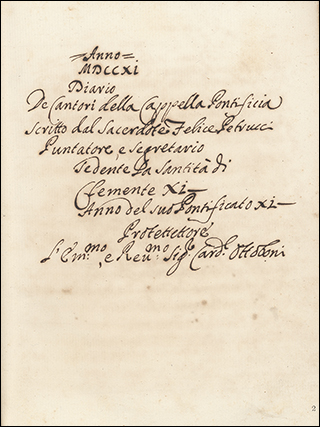 =Anno=
MDCCXI
Diario
De Cantori della Cappella Pontificia
Scritto dal Sacerdote Felice Petrucci
Puntatore, e Segretario
Sedente La Santità di
Clemente XI-
Anno del suo Pontificato XI-
Protettore
L'Em.mo, e Reu.mo Sig. Card.l Ottoboni
2